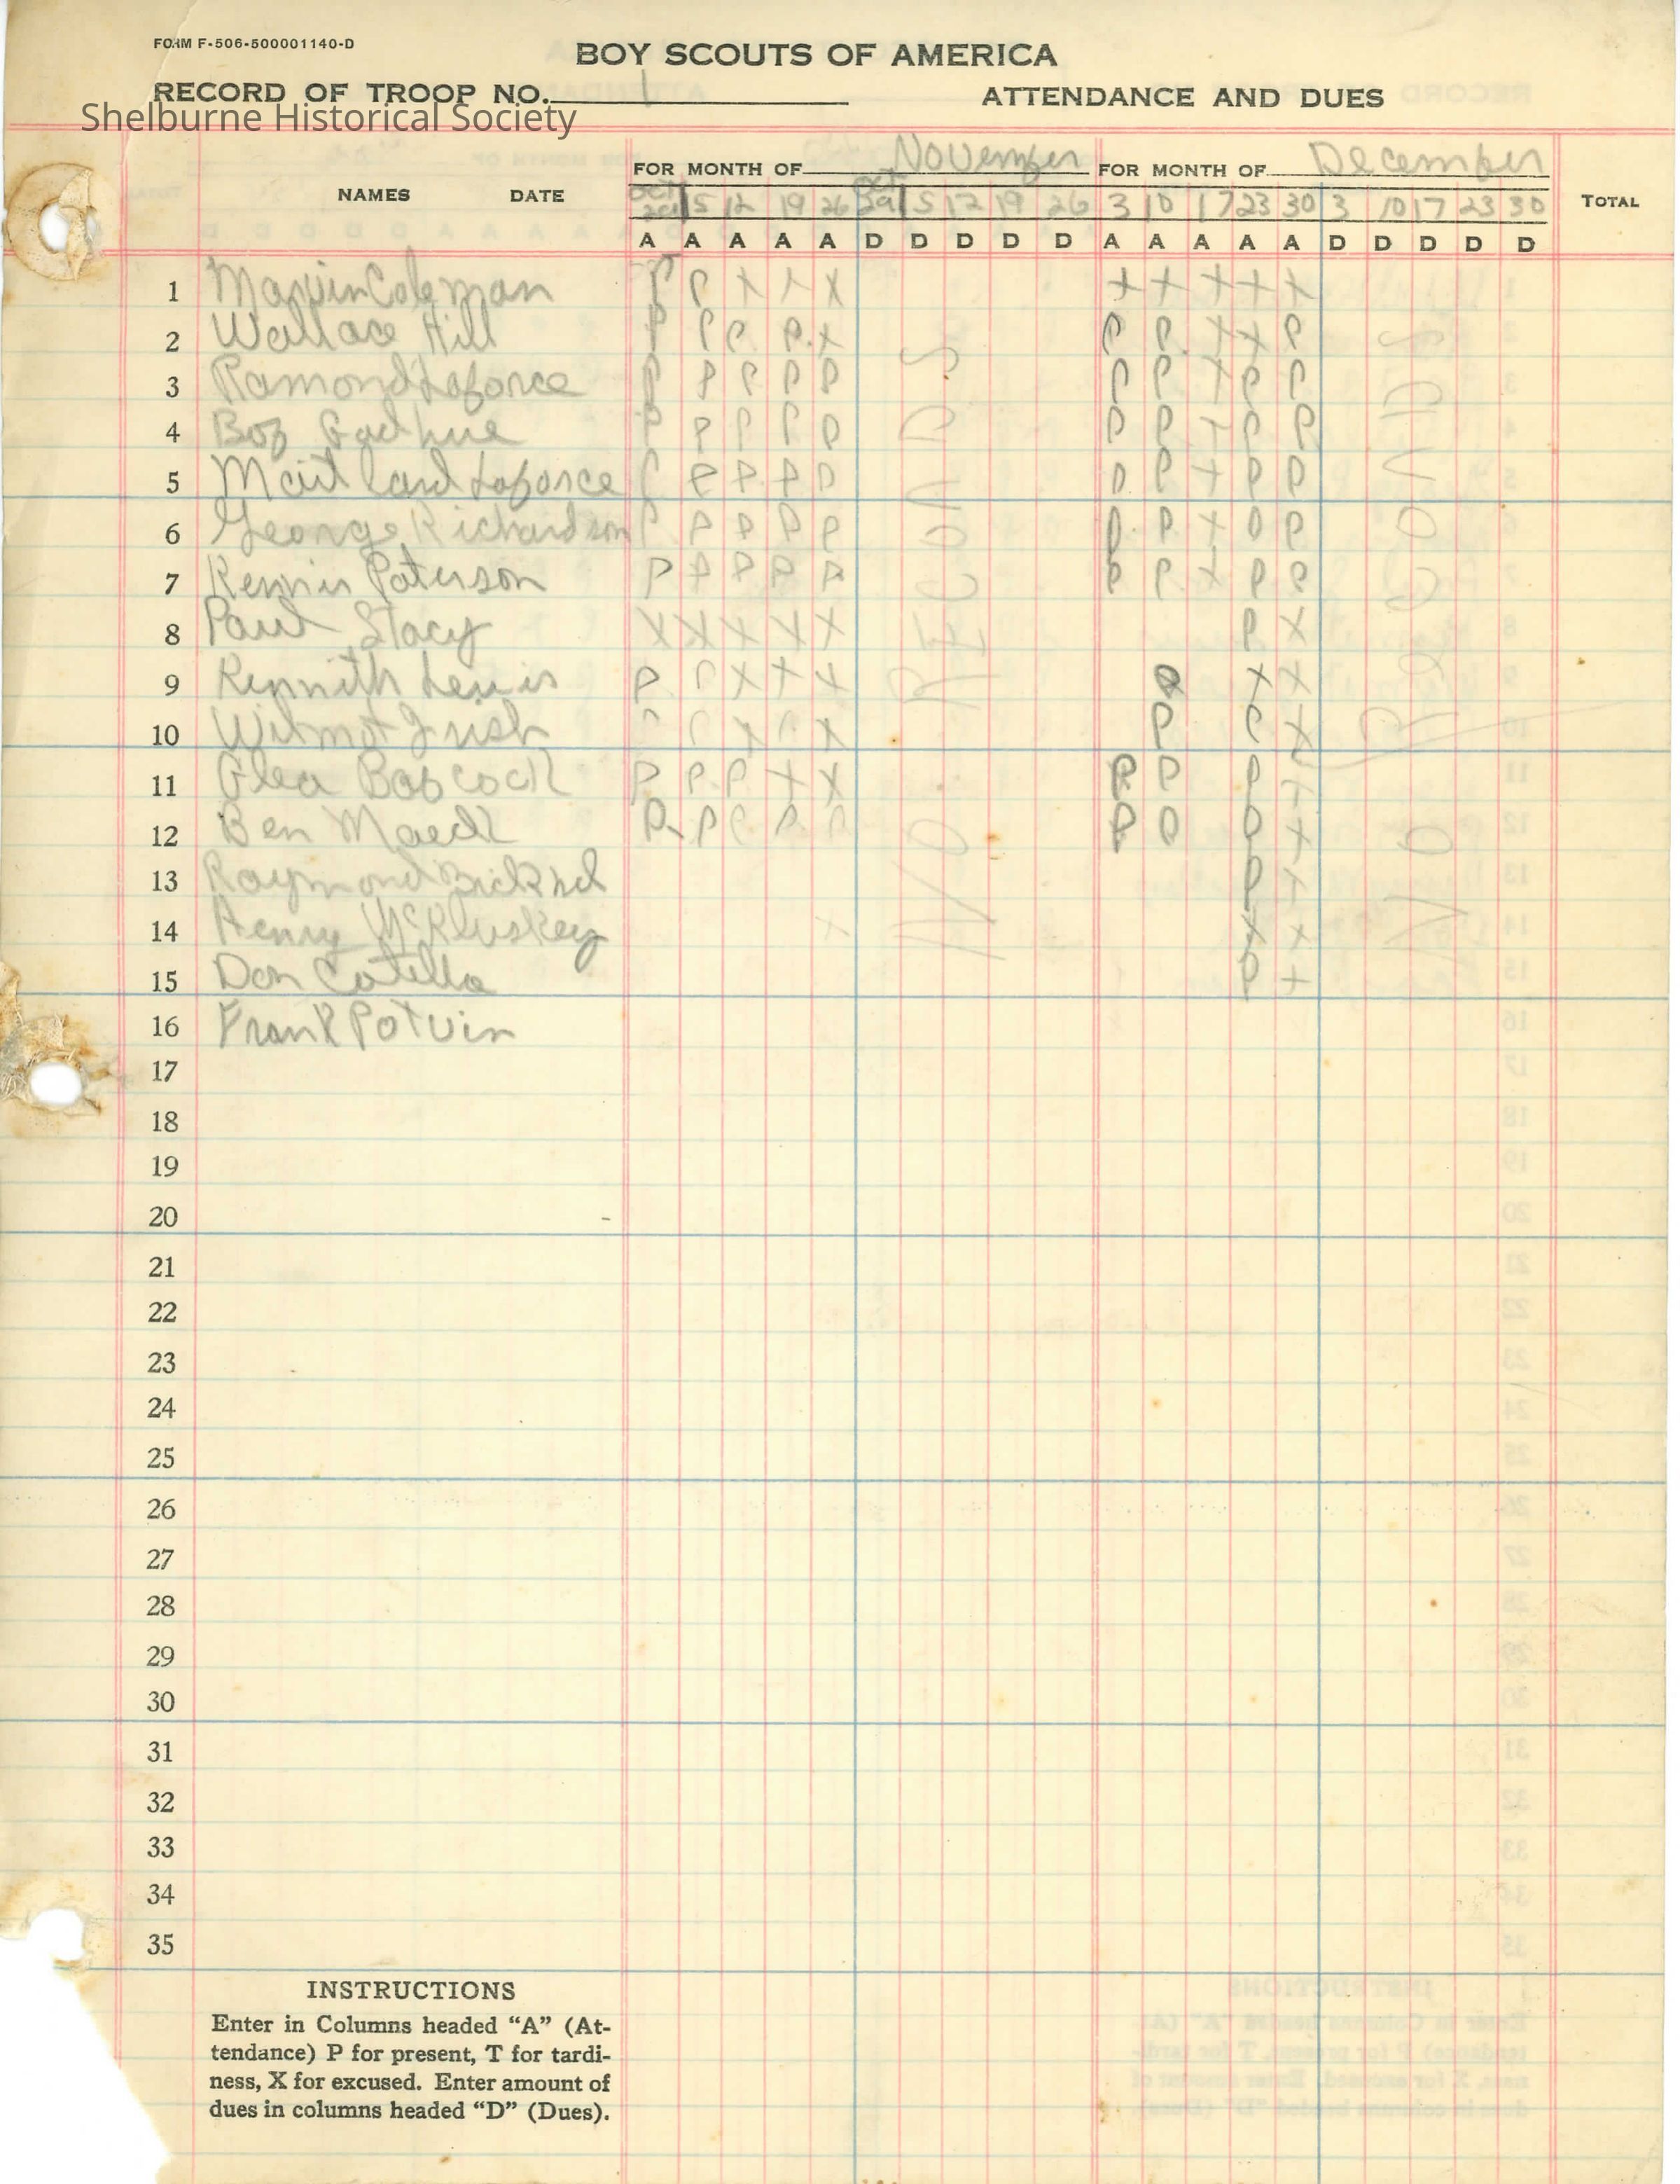 FORM F-506-500001140-D
BOY SCOUTS OF AMERICA
RECORD OF TROOP NO. 1 ATTENDANCE AND DUES
Shelburne Historical Society
FOR MONTH OF November FOR MONTH OF December
NAMES DATE Oct 29 5 12 19 26 Oct 29 5 12 19 26 3 10 17 23 30 3 10 17 23 30 TOTAL
A A A A A D D D D D A A A A A D D D D D
1 Marvin Coleman P P X X X X X X X X
2 Wallace Hill P P P P X P P X X P
3 Ramond Laforce P P P P P P P X P P
4 Bob Gadhue P P P P P P P X P P
5 Maitland Laforce P P P P P P P X P P
6 George Richardson P P P P P P P X P P
7 Kennis Paterson P P P P P P P X P P
8 Paul Stacy X X X X X P X
9 Kennith Lewis P P X X X P X X
10 Wilmot Irish P P X P X P P X
11 Glen Babcock P P P X X P P P X
12 Ben Maeck P P P P P P P P X
13 Raymond Bicknel P X
14 Henry McKluskey X X X
15 Don Catella P X
16 Frank Potvin
NO RECORDS
NO RECORDS
17
18
19
20
21
22
23
24
25
26
27
28
29
30
31
32
33
34
35
INSTRUCTIONS
Enter in Columns headed "A" (At-
tendance) P for present, T for tardi-
ness, X for excused. Enter amount of
dues in columns headed "D" (Dues).